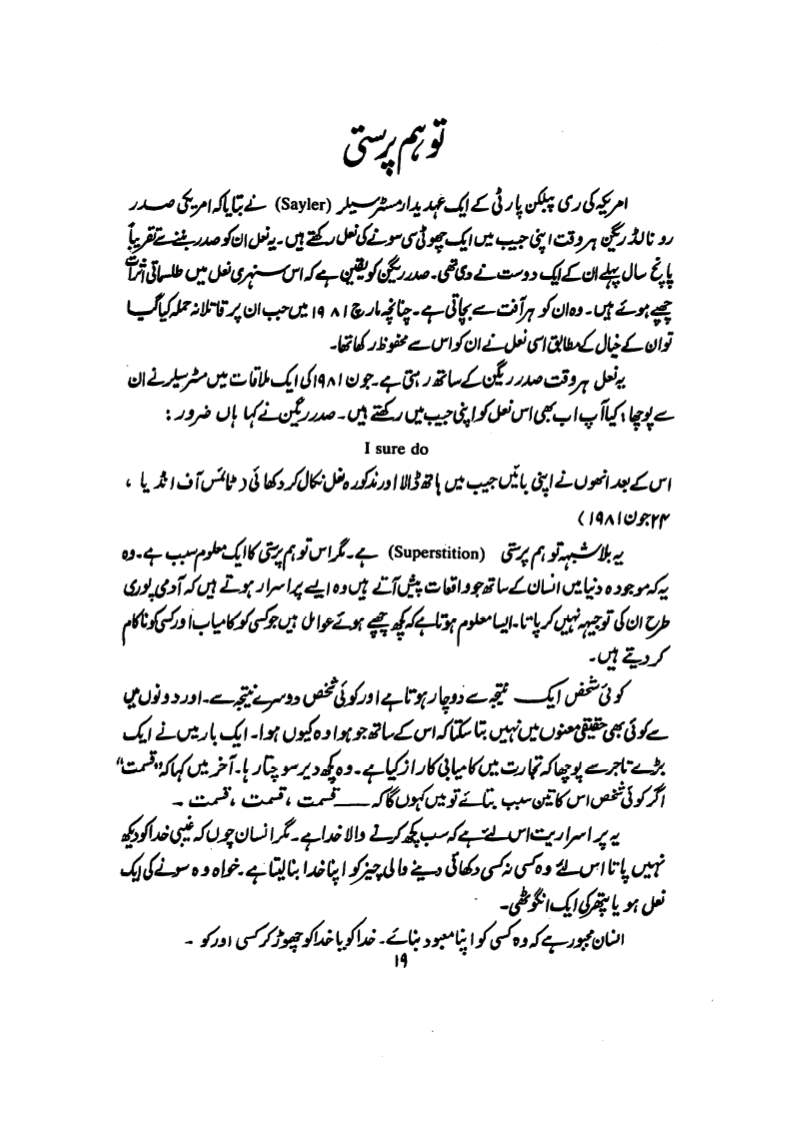 توہم پرستی
امریکہ کی ری پبلکن پارٹی کے ایک عہدیدار مسٹر سیلر (Sayler) نے بتایا کہ امریکی صدر
رونالڈ ریگن ہر وقت اپنی جیب میں ایک چھوٹی سی سونے کی نعل رکھتے ہیں۔ یہ نعل ان کو صدر بننے سے تقریباً
پانچ سال پہلے ان کے ایک دوست نے دی تھی۔ صدر ریگن کو یقین ہے کہ اس سنہری نعل میں طلسماتی اثرات
چھپے ہوئے ہیں۔ وہ ان کو ہر آفت سے بچاتی ہے۔ چنانچہ مارچ ۱۹۸۱ میں جب ان پر قاتلانہ حملہ کیا گیا
تو ان کے خیال کے مطابق اسی نعل نے ان کو اس سے محفوظ رکھا تھا۔
یہ نعل ہر وقت صدر ریگن کے ساتھ رہتی ہے۔ جون ۱۹۸۱ کی ایک ملاقات میں مسٹر سیلر نے ان
سے پوچھا، کیا آپ اب بھی اس نعل کو اپنی جیب میں رکھتے ہیں۔ صدر ریگن نے کہا ہاں ضرور :
I sure do
اس کے بعد انھوں نے اپنی بائیں جیب میں ہاتھ ڈالا اور مذکورہ نعل نکال کر دکھائی (ٹائمس آف انڈیا ،
۲۴ جون ۱۹۸۱)
یہ بلاشبہہ توہم پرستی (Superstition) ہے۔ مگر اس توہم پرستی کا ایک معلوم سبب ہے۔ وہ
یہ کہ موجودہ دنیا میں انسان کے ساتھ جو واقعات پیش آتے ہیں وہ ایسے پر اسرار ہوتے ہیں کہ آدمی پوری
طرح ان کی توجیہہ نہیں کر پاتا۔ ایسا معلوم ہوتا ہے کہ کچھ چھپے ہوئے عوامل ہیں جو کسی کو کامیاب اور کسی کو ناکام
کر دیتے ہیں۔
کوئی شخص ایک نتیجہ سے دوچار ہوتا ہے اور کوئی شخص دوسرے نتیجہ سے۔ اور دونوں میں
سے کوئی بھی حقیقی معنوں میں نہیں بتا سکتا کہ اس کے ساتھ جو ہوا وہ کیوں ہوا۔ ایک بار میں نے ایک
بڑے تاجر سے پوچھا کہ تجارت میں کامیابی کا راز کیا ہے۔ وہ کچھ دیر سوچتا رہا۔ آخر میں کہا کہ "قسمت"
اگر کوئی شخص اس کا تین سبب بتائے تو میں کہوں گا کہ ـــــ قسمت ، قسمت ، قسمت ۔
یہ پر اسراریت اس لئے ہے کہ سب کچھ کرنے والا خدا ہے۔ مگر انسان چوں کہ غیبی خدا کو دیکھ
نہیں پاتا اس لئے وہ کسی نہ کسی دکھائی دینے والی چیز کو اپنا خدا بنا لیتا ہے۔ خواہ وہ سونے کی ایک
نعل ہو یا پتھر کی ایک انگوٹھی۔
انسان مجبور ہے کہ وہ کسی کو اپنا معبود بنائے۔ خدا کو یا خدا کو چھوڑ کر کسی اور کو ۔
۱۹